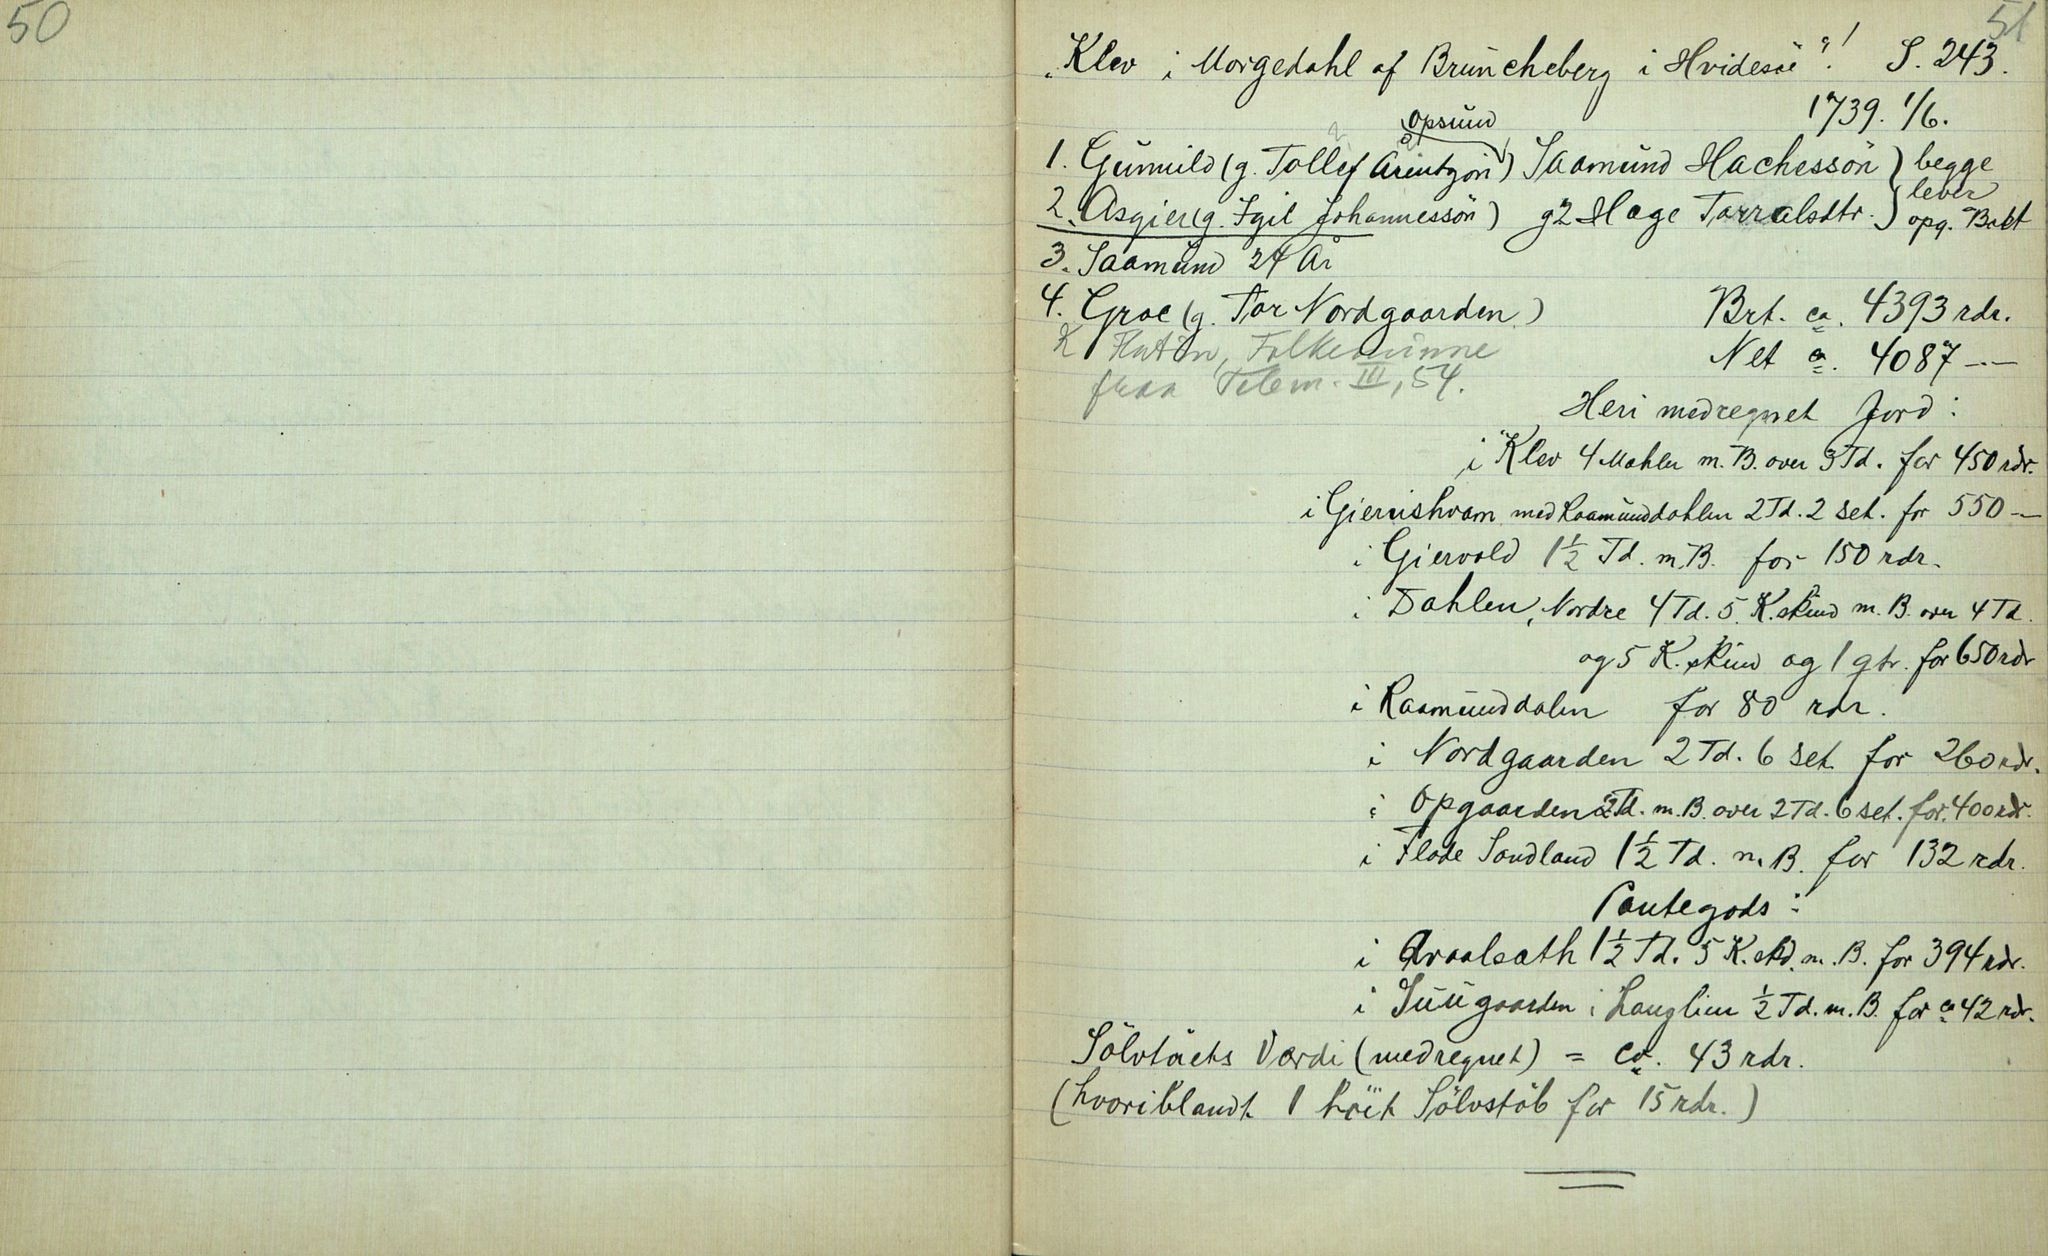 50
51
„Klev i Morgedahl af Brüncheberg i Hvidesöe"! S. 243.
1739. 1/6.
Opsund
1. Gunnild (g. Tollef Arentzön) Saamund Hachessön } begge
2. Asgier (g. Egil Johannessön) g2 Hage Tarralsdtr. } lever
opg. Bokt
3. Saamund 24 År
4. Groe (g. Tor Nordgaarden) Brt. ca. 4393 rdr.
K Flatin, Folkeminne Net ca. 4087 -"-
fraa Telem. III, 54.
Heri medregnet Jord:
i Klev 4 Mahler m. B. over 3 Td. for 450 rdr.
i Giernishvam med Raamunddahlen 2 Td. 2 set. for 550 -"-
i Giervold 1½ Td. m. B. for 150 rdr.
i Dahlen, Nordre 4 Td. 5 K.skind m. B. over 4 Td.
og 5 K.skind og 1 qtr. for 650 rdr
i Raamunddalen for 80 rdr.
i Nordgaarden 2 Td. 6 set. for 260 rdr.
i Opgaarden 2 Td. m. B. over 2 Td. 6 set. for 400 rdr.
i Flade Sandland 1½ Td. m. B. for 132 rdr.
Pantegods:
i Qvaalsæth 1½ Td. 5 K.skd. m. B. for 394 rdr.
i Suugaarden i Langlim ½ Td. m. B. for ca 42 rdr.
Sölvtöiets Værdi (medregnet) = ca. 43 rdr.
(hvoriblandt 1 höit Sölvstöb for 15 rdr.)